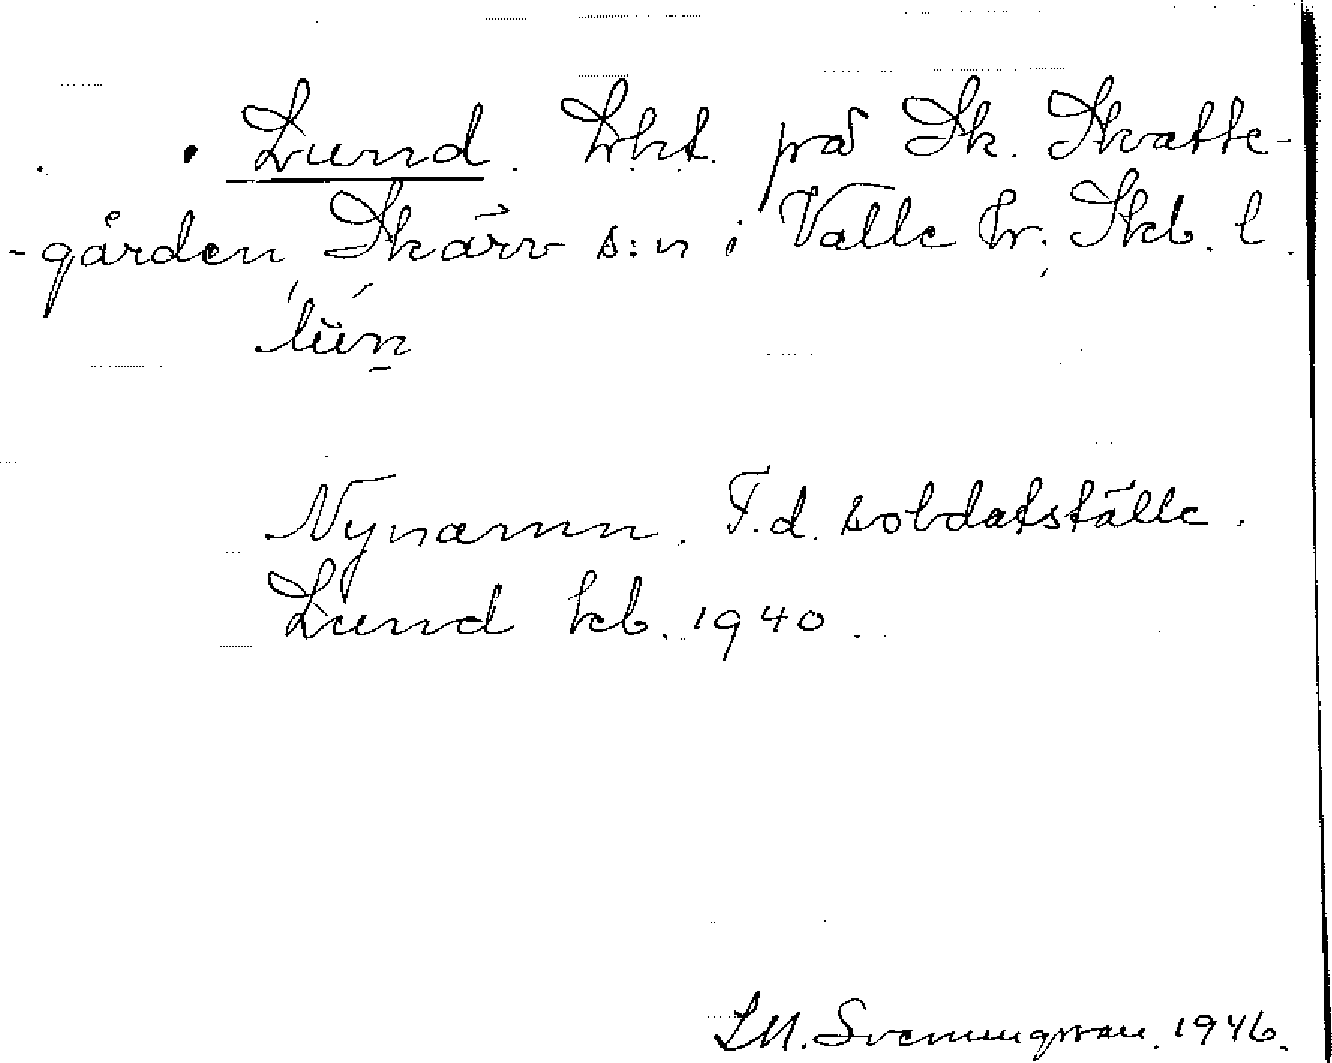 Lund. Lht. på Sk. Skatte-
-gården, Skärv s:n i Valle hr. Skb. l.
lun
Nynamn. F.d. soldatställe.
Lund kb. 1940.
Svenungsson. 1946.